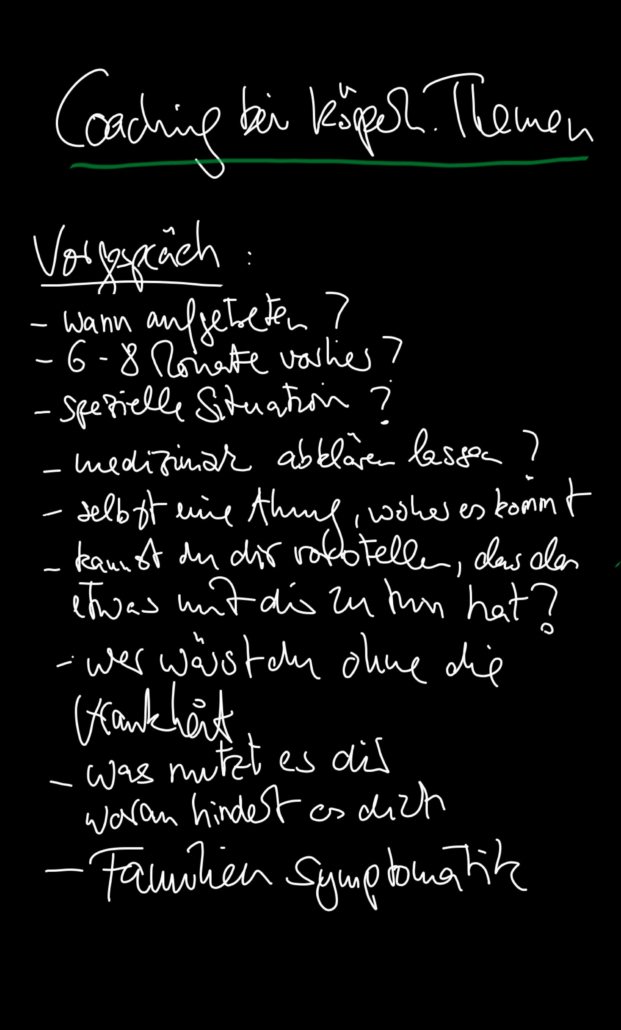 Coaching bei körperl. Themen
Vorgespräch :
- wann aufgetreten ?
- 6 - 8 Monate vorher ?
- spezielle Situation ?
- medizinisch abklären lassen ?
- selbst eine Ahnung, woher es kommt
- kannst du dir vorstellen, das das
etwas mit dir zu tun hat ?
- wer wärst du ohne die
Krankheit
- was nutzt es dir
woran hindert es dich
- Familien Symptomatik